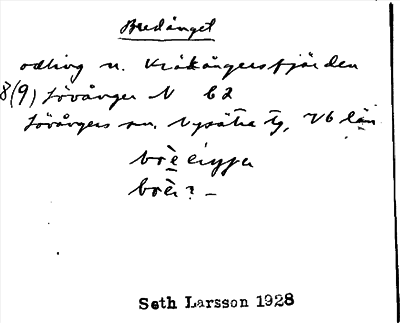 Bredånget
odling n. Kråkångersfjärden
8(9) Lövånger N C2
Lövångers sn. Nysätra tg, Vb län
bòè
boèr? –
Seth Larsson 1928